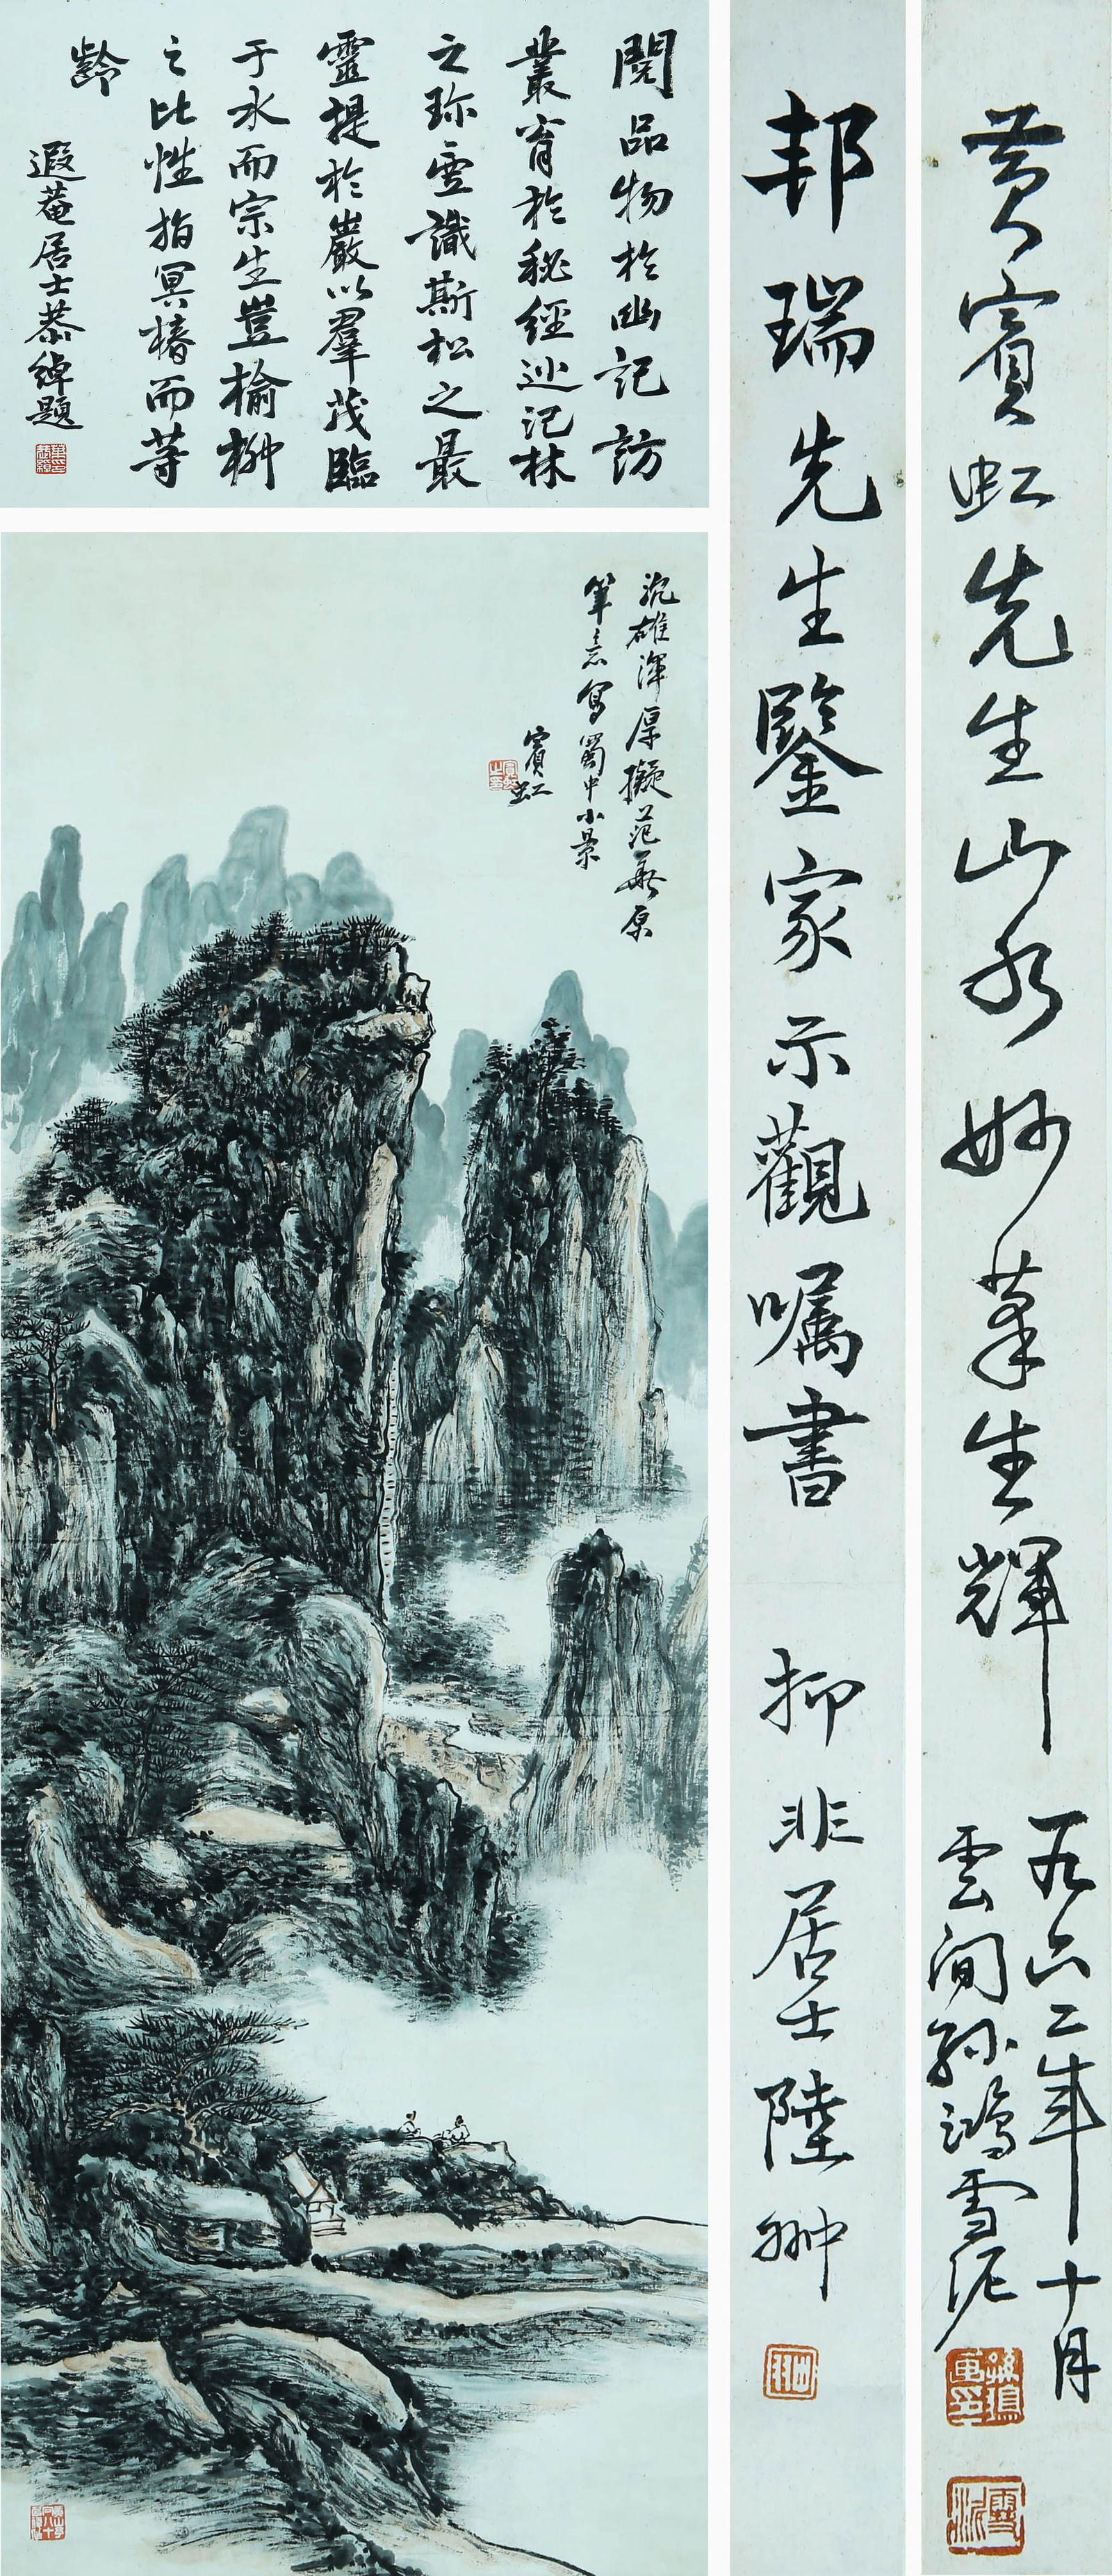 閱品物於幽記訪
叢育於秘經巡記林
之珎靈識斯松之最
靈提於巖以羣茂臨
于水而宗生豈榆柳
之比性指冥椿而等
齡
遐菴居士恭綽題
沉雄渾厚擬范華原
筆意寫蜀中小景
賓虹
邦瑞先生鑒家示觀嘱書
抑非居士陸翀
黄賓虹先生山水妙筆生輝
一九六二年十月
雲間孫鴻雪泥